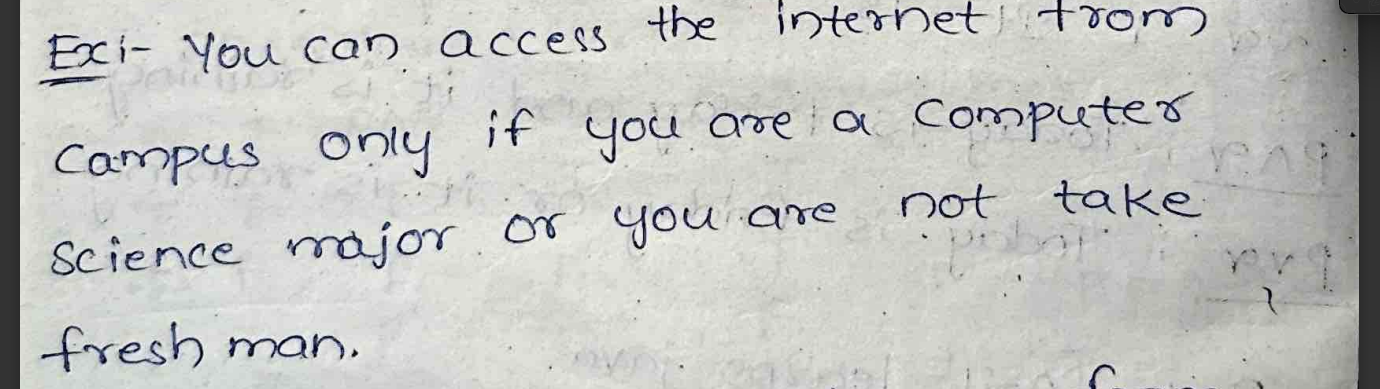 Ex:- You can access the internet from
Campus only if you are a Computer
Science major or you are not take
fresh man.